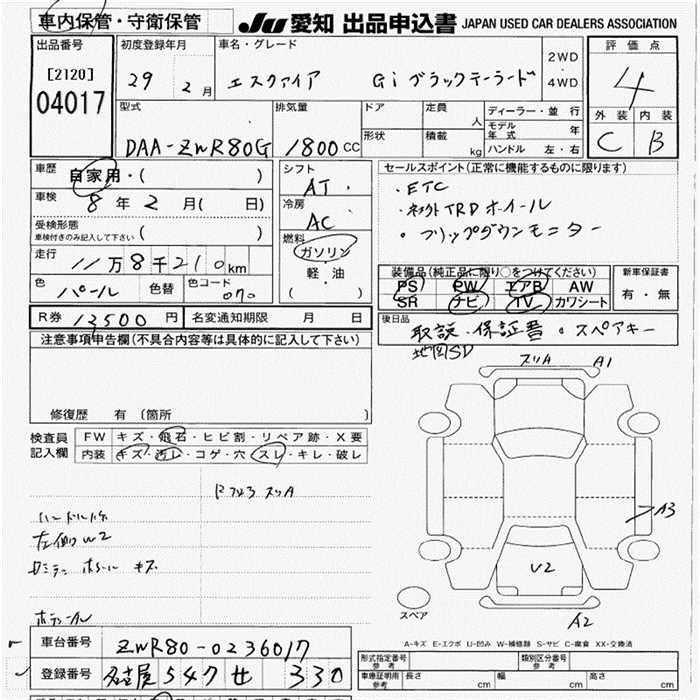 車内保管・守衛保管
JU 愛知 出品申込書 JAPAN USED CAR DEALERS ASSOCIATION
出品番号
[2120]
04017
初度登録年月
29 2月
車名・グレード
エスクァイア Gi ブラックテーラード
2WD
4WD
評価点
4
外装 内装
C B
型式
DAA-ZWR80G
排気量
1800cc
ドア
形状
定員 人
積載 kg
ディーラー・並行
モデル年式 年
ハンドル 左・右
車歴
自家用・( )
車検
8年2月( 日)
受検形態
車検付きのみ記入して下さい ( )
走行
11万8千210km
色
パール
色替
色コード
070
シフト
AT
冷房
AC
燃料
ガソリン
軽・油
( )
セールスポイント(正常に機能するものに限ります)
・ETC
・ネオトTRDホイール
・フリップダウンモニター
装備品(純正品に限り○をつけてください)
PS PW エアB AW
SR ナビ TV カワシート
新車保証書
有・無
R券 13500円
名変通知期限 月 日
後日品
取説・保証書・スペアキー
地図SD
注意事項申告欄(不具合内容等は具体的に記入して下さい)
修復歴 有(箇所 )
検査員記入欄
FW キズ・飛石・ヒビ割・リペア跡・X要
内装 キズ・汚レ・コゲ・穴・スレ・キレ・破レ
スリA A1
A3
U2
A2
スペア
A-キズ E-エクボ U-凹み W-補修跡 S-サビ C-腐食 XX-交換済
車台番号
ZWR80-0236017
登録番号
名古屋 547 せ 330
形式指定番号
参考
類別区分番号
参考
車庫証明用
参考
長さ cm
幅 cm
高さ cm